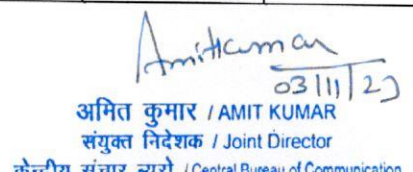 Amitkumar
03/11/23
अमित कुमार / AMIT KUMAR
संयुक्त निदेशक / Joint Director
केन्द्रीय संचार ब्यूरो / Central Bureau of Communication